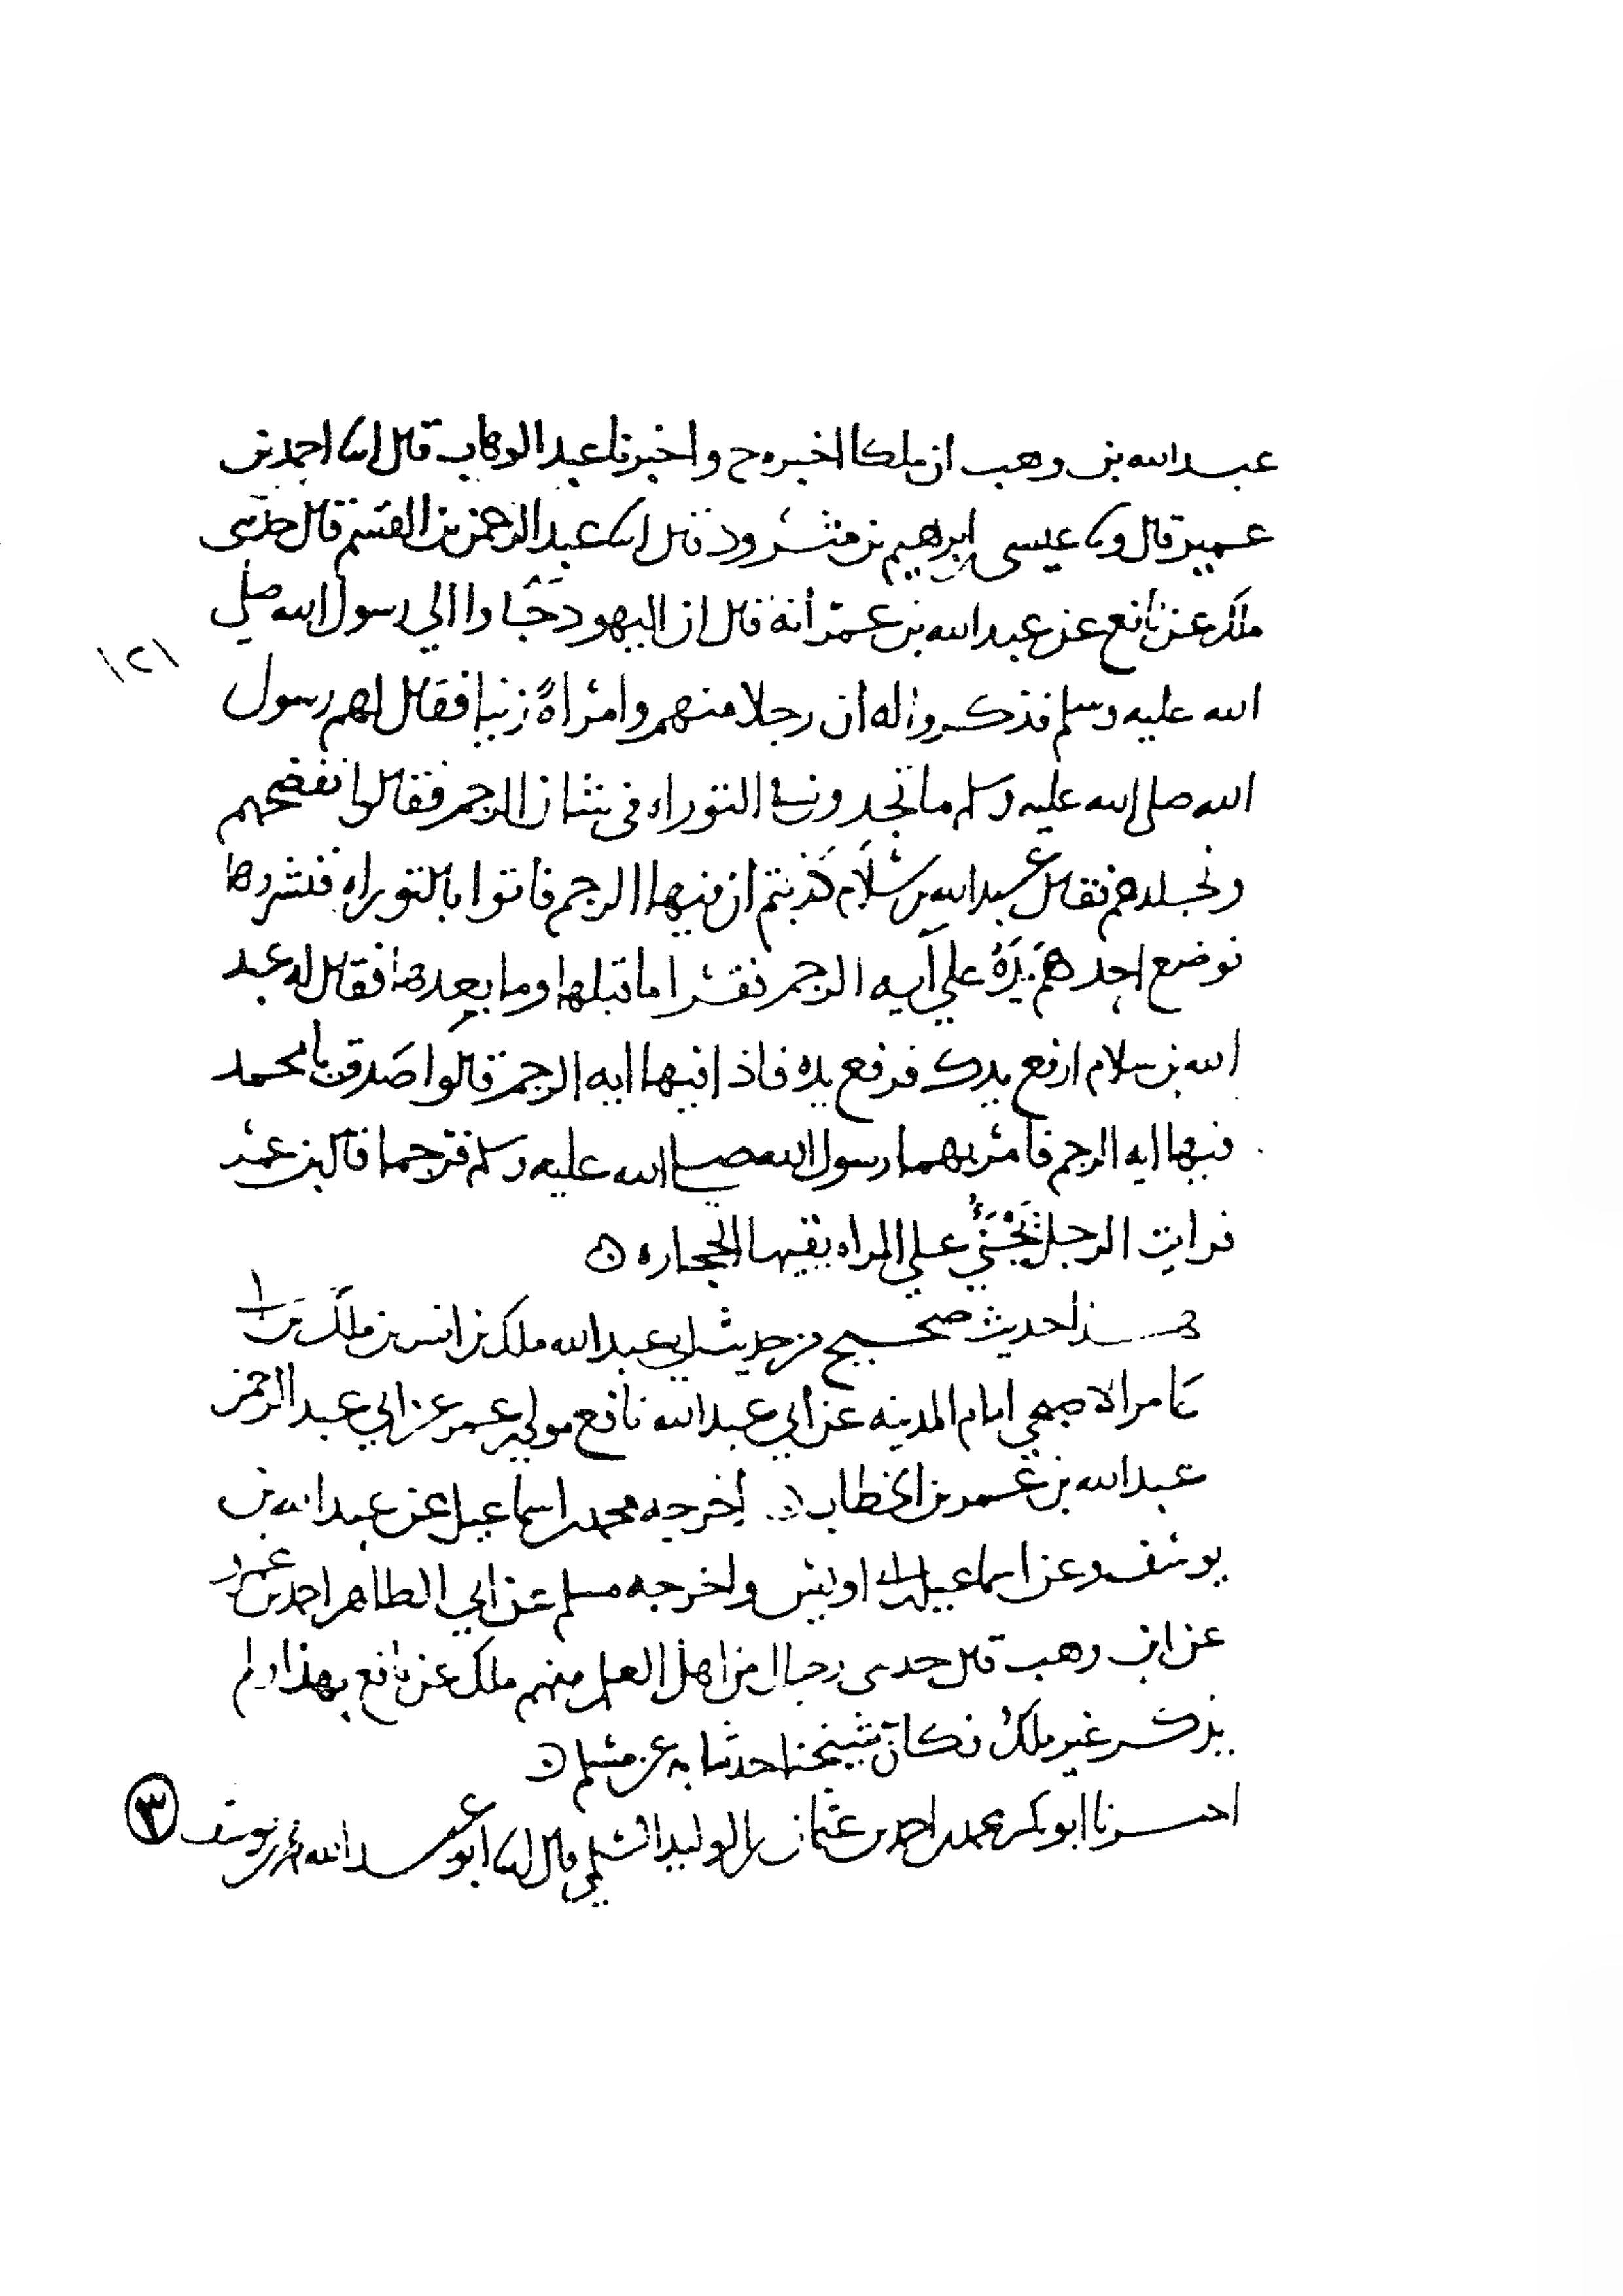 عبد الله بن وهب ان ملكا اخبره ح واخبرنا عبد الوهاب قال انا احمد بن
عمير قال ونا عيسى بن ابرهيم بن مثرود قال انا عبد الرحمن بن القسم قال حدثنى
ملك عن نافع عن عبد الله بن عمر أنه قال ان اليهود جاوا الي رسول الله صلي
الله عليه وسلم فذكروا له ان رجلا منهم وامراةً زنيا فقال لهم رسول
الله صلى الله عليه وسلم ما تجدون في التوراه فى شان الرجم فقالوا نفضحهم
ونجلدهم فقال عبد الله بن سلام كذبتم ان فيها الرجم فاتوا بالتوراه فنشروها
فوضع احدهم يَدَهُ علي آيه الرجم فقرا ما قبلها وما بعدها فقال له عبد
الله بن سلام ارفع يدك فرفع يده فاذا فيها ايه الرجم قالوا صَدق يا محمد
فيها ايه الرجم فامر بهما رسول الله صلى الله عليه وسلم فرجما قال بن عمر
فرايت الرجل يَجْنَئُ علي المراه يقيها الحجاره ن
هذا حديث صحيح من حديث ابي عبد الله ملك بن انس بن ملك بن ا
عامر الاصبحي امام المدينه عن ابي عبد الله نافع مولى بن عمر عن ابي عبد الرحمن
عبد الله بن عمر بن الخطاب ن اخرجه محمد بن اسماعيل عن عبد الله بن
يوسف وعن اسماعيل بن ابي اويس واخرجه مسلم عن ابي الطاهر احمد بن عمرو
عن ابن وهب قال حدثنى رجال من اهل العلم منهم ملك عن نافع بهذا ولم
يذكر غير ملك فكان شيخنا حدثنا به عن مسلم ن
اخبرنا ابو بكر محمد بن احمد بن عثمان بن الوليد السلمي قال انا ابو عبد الله محمد بن يوسف
١٢١
٣